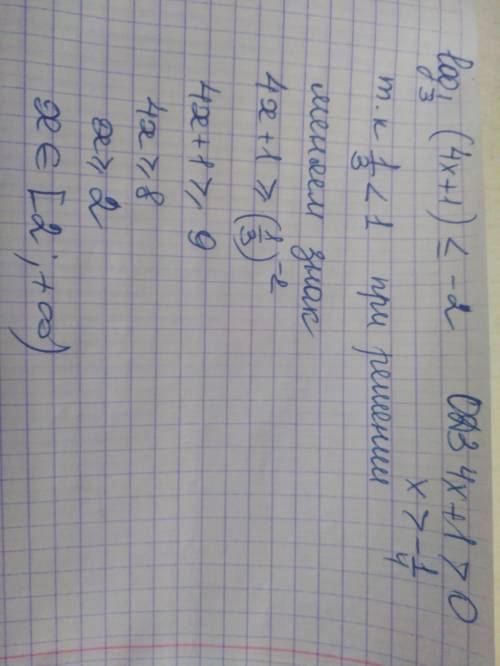 log 1/3 (4x+1) ≤ -2 ОДЗ 4x+1 > 0
x > -1/4
т.к 1/3 < 1 при решении
меняем знак
4x+1 ≥ (1/3)^-2
4x+1 ≥ 9
4x ≥ 8
x ≥ 2
x ∈ [2; +∞)